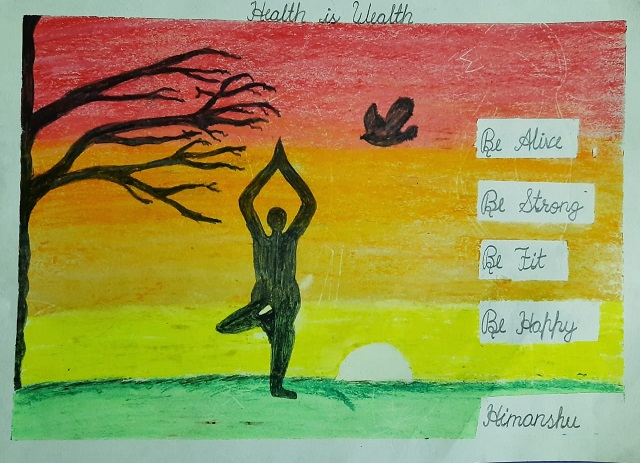 Health is Wealth
Be Alive
Be Strong
Be Fit
Be Happy
Himanshu